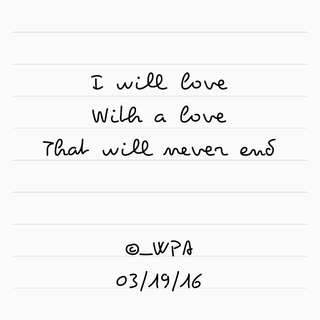 I will love
With a love
That will never end
©_WPA
03/19/16